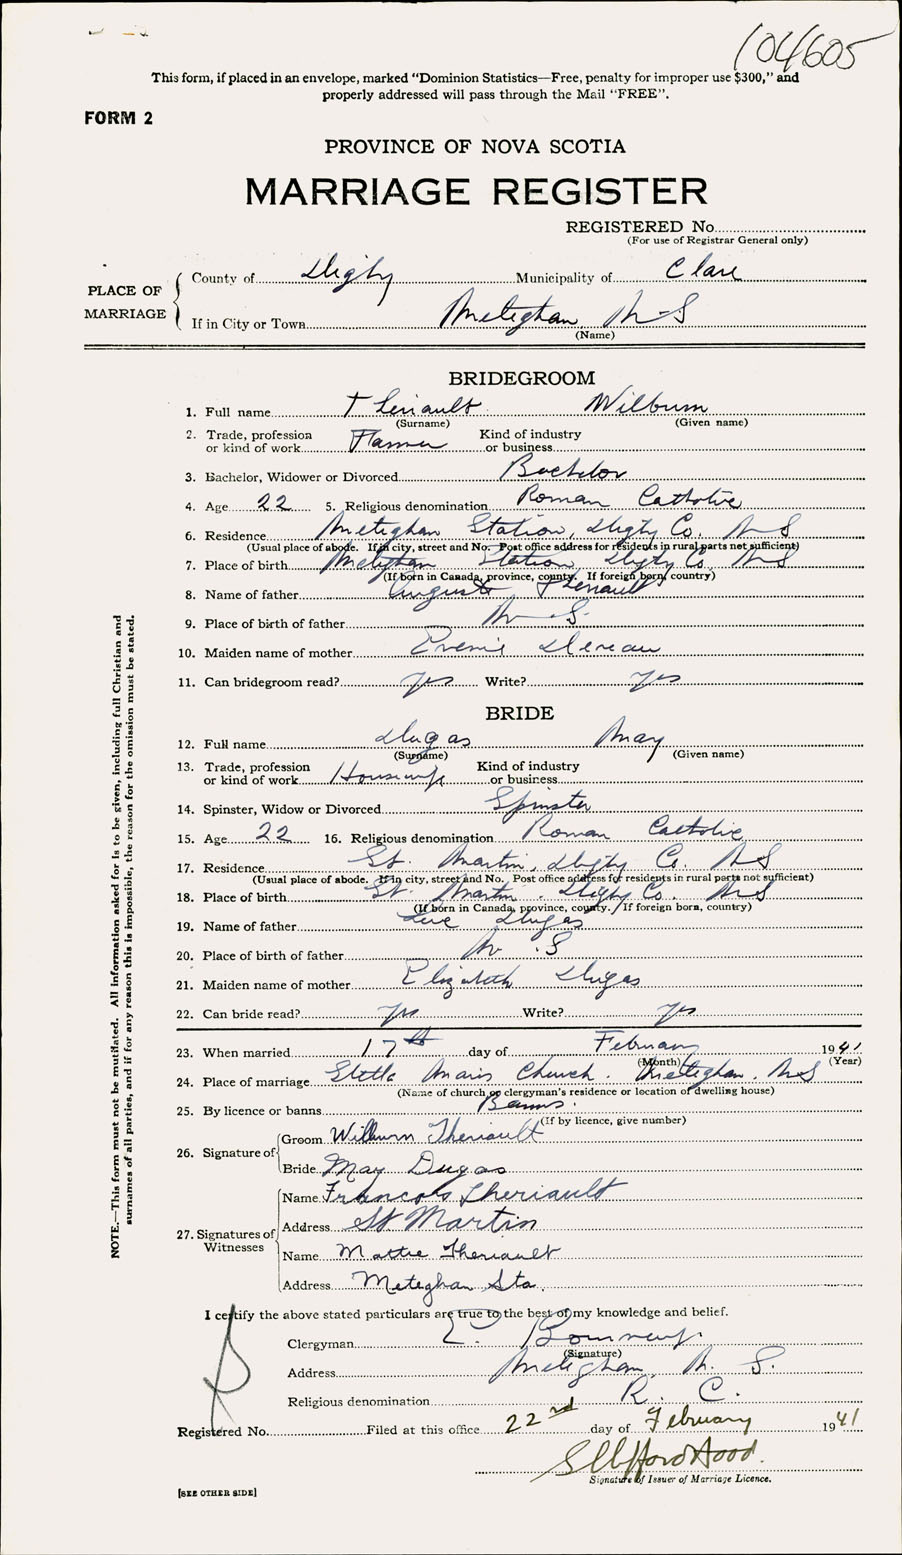 104605
This form, if placed in an envelope, marked "Dominion Statistics—Free, penalty for improper use $300," and
properly addressed will pass through the Mail "FREE".
FORM 2
PROVINCE OF NOVA SCOTIA
MARRIAGE REGISTER
REGISTERED No.
(For use of Registrar General only)
PLACE OF MARRIAGE
County of Digby Municipality of Clare
If in City or Town Meteghan N S
(Name)
BRIDEGROOM
1. Full name Theriault Wilburn
(Surname) (Given name)
2. Trade, profession or kind of work Farmer Kind of industry or business
3. Bachelor, Widower or Divorced Bachelor
4. Age 22 5. Religious denomination Roman Catholic
6. Residence Meteghan Station, Digby Co. N S
(Usual place of abode. If in city, street and No. Post office address for residents in rural parts not sufficient)
7. Place of birth Meteghan Station, Digby Co. N S
(If born in Canada, province, county. If foreign born, country)
8. Name of father Theriault
9. Place of birth of father N. S.
10. Maiden name of mother
11. Can bridegroom read? yes Write? yes
BRIDE
12. Full name Dugas May
(Surname) (Given name)
13. Trade, profession or kind of work Housewife Kind of industry or business
14. Spinster, Widow or Divorced Spinster
15. Age 22 16. Religious denomination Roman Catholic
17. Residence St. Martin, Digby Co. N S
(Usual place of abode. If in city, street and No. Post office address for residents in rural parts not sufficient)
18. Place of birth St. Martin Digby Co. N S
(If born in Canada, province, county. If foreign born, country)
19. Name of father Dugas
20. Place of birth of father N. S
21. Maiden name of mother Elizabeth Dugas
22. Can bride read? yes Write? yes
23. When married 17th day of February 1941
(Month) (Year)
24. Place of marriage Stella Maris Church. Meteghan. N S
(Name of church, or clergyman's residence or location of dwelling house)
25. By licence or banns Banns.
(If by licence, give number)
26. Signature of
Groom Wilburn Theriault
Bride May Dugas
27. Signatures of Witnesses
Name Francois Theriault
Address St Martin
Name Mattie Theriault
Address Meteghan Sta.
I certify the above stated particulars are true to the best of my knowledge and belief.
Clergyman E.
(Signature)
Address Meteghan, N. S.
Religious denomination R. C.
Registered No. Filed at this office 22nd day of February 1941
Signature of Issuer of Marriage Licence.
[SEE OTHER SIDE]
NOTE.—This form must not be mutilated. All information asked for is to be given, including full Christian and
surnames of all parties, and if for any reason this is impossible, the reason for the omission must be stated.